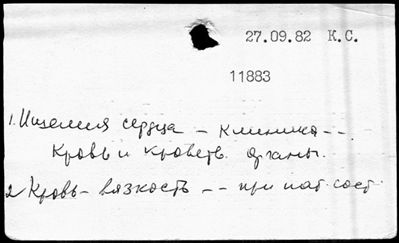 27.09.82 К.С.
11883
1. Ишемия сердца – клиника --
Кровь и кроветв. органы.
2 Кровь – вязкость -- при пат сост